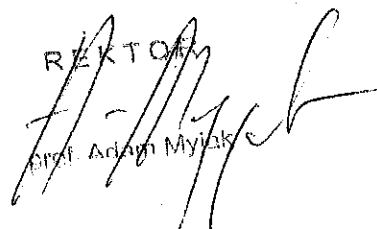 REKTOR
prof. Adam Myjak